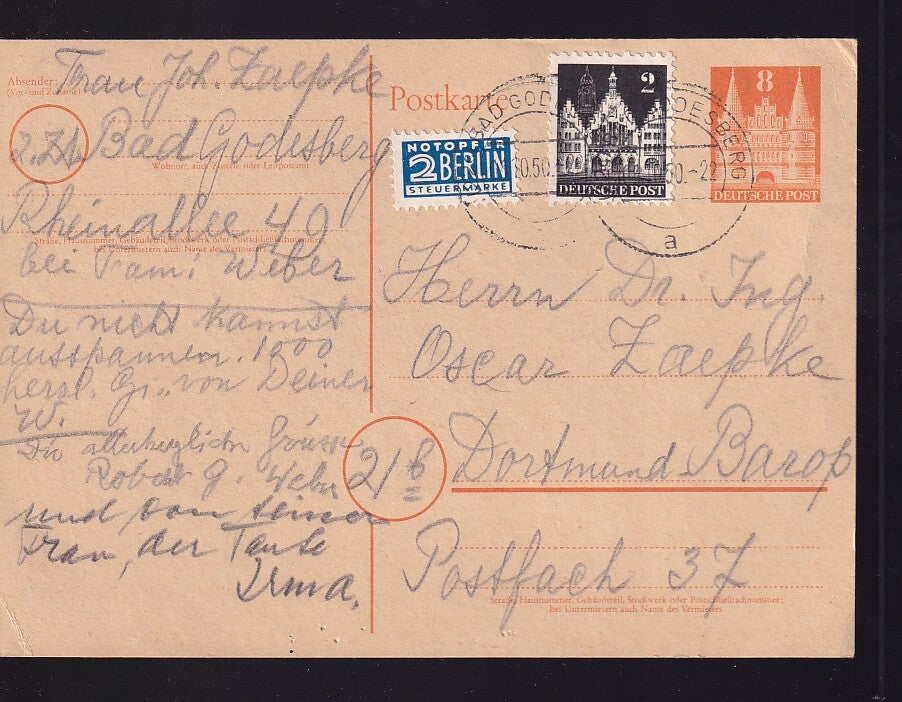 Absender: Frau Joh. Zaepke
(Vor- und Zuname)
Bad Godesberg
Wohnort, auch Zustell- oder Leitpostamt
Rheinallee 49
Straße, Hausnummer, Gebäudeteil, Stockwerk oder Postschließfachnummer;
bei Untermietern auch Name des Vermieters
bei Fam: Weber
Du nicht kannst
ausspannen. 1000
herzl. Gr. von Deiner
W.
Die allerherzlichen Grüsse
Robert g. Weber
und von seiner
Frau, der Tante
Irma.
Postkarte
NOTOPFER
2 BERLIN
STEUERMARKE
BAD GODESBERG
2
DEUTSCHE POST
8
DEUTSCHE POST
a
Herrn Dr. Ing.
Oscar Zaepke
21 b
Dortmund Barop
Postfach 37
Straße, Hausnummer, Gebäudeteil, Stockwerk oder Postschließfachnummer;
bei Untermietern auch Name des Vermieters